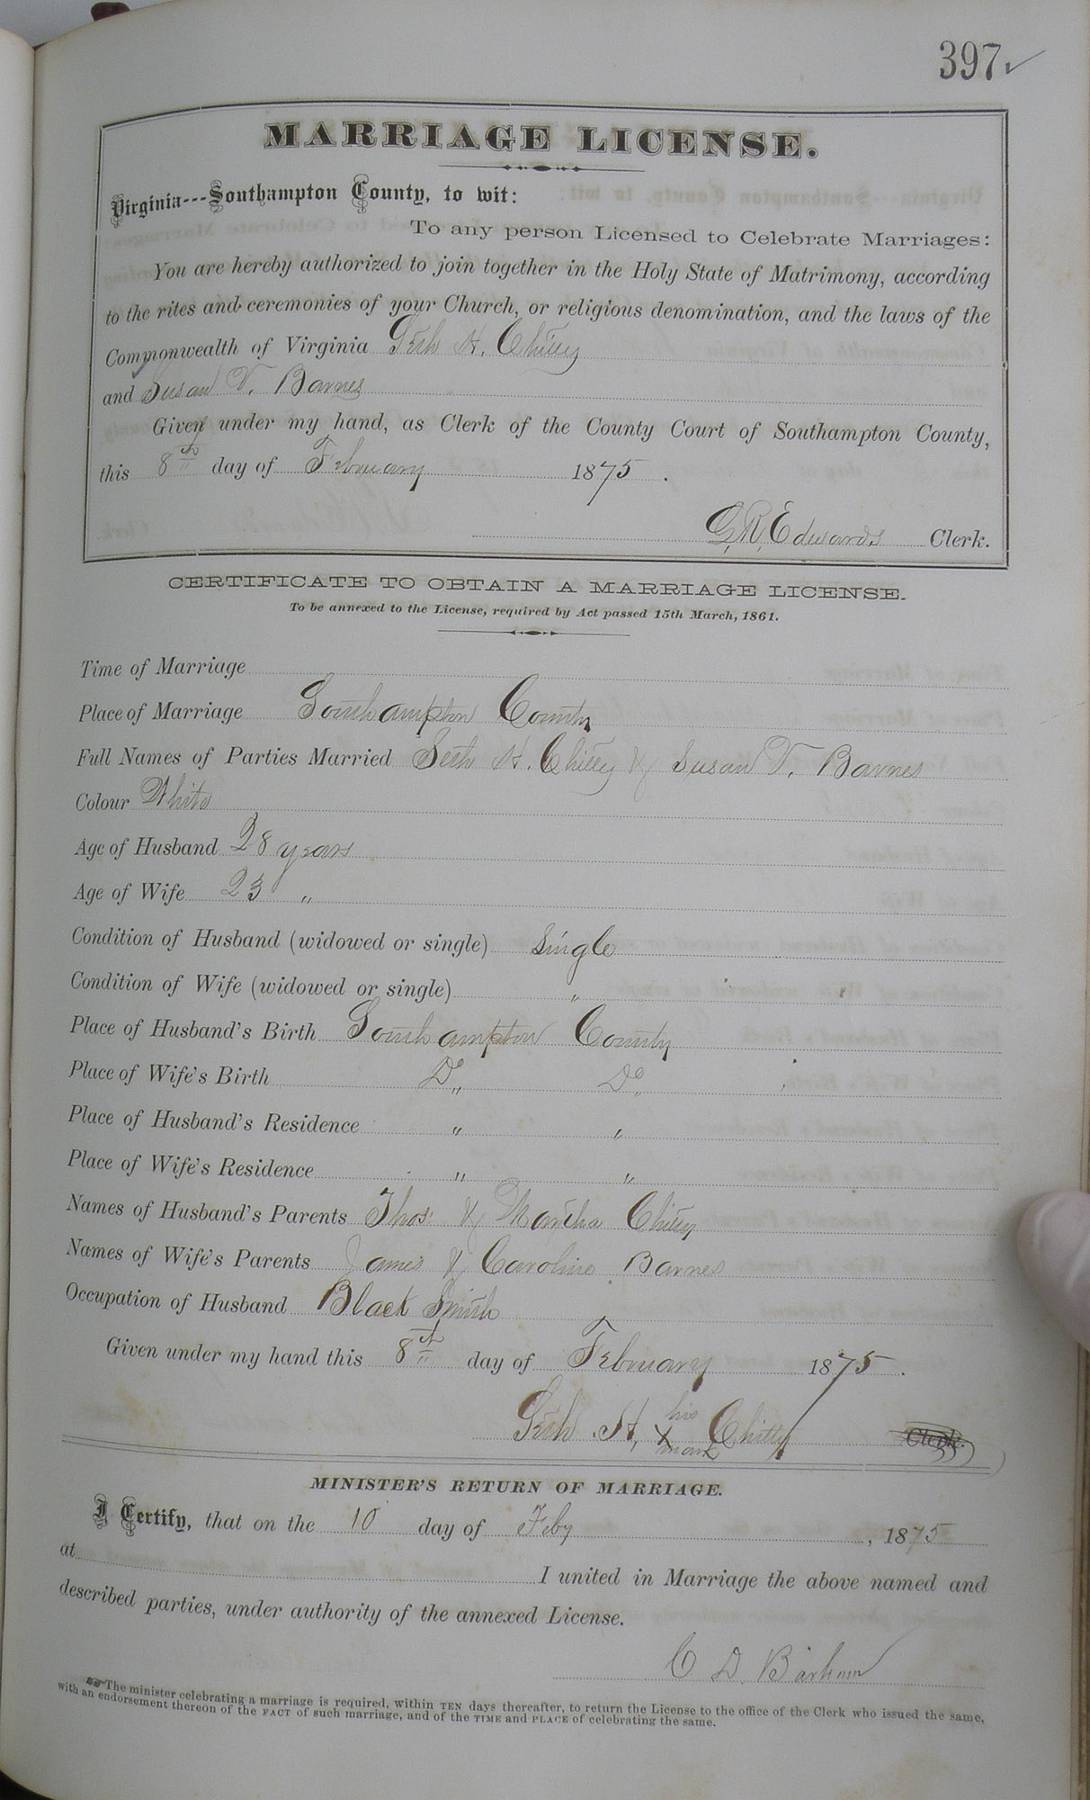 397
MARRIAGE LICENSE.
Virginia---Southampton County, to wit:
To any person Licensed to Celebrate Marriages:
You are hereby authorized to join together in the Holy State of Matrimony, according
to the rites and ceremonies of your Church, or religious denomination, and the laws of the
Commonwealth of Virginia Seth H. Chitty
and Susan V. Barnes
Given under my hand, as Clerk of the County Court of Southampton County,
this 8th day of February 1875.
G. R. Edwards Clerk.
CERTIFICATE TO OBTAIN A MARRIAGE LICENSE.
To be annexed to the License, required by Act passed 15th March, 1861.
Time of Marriage
Place of Marriage Southampton County
Full Names of Parties Married Seth H. Chitty & Susan V. Barnes
Colour White
Age of Husband 28 years
Age of Wife 23 "
Condition of Husband (widowed or single) Single
Condition of Wife (widowed or single) "
Place of Husband's Birth Southampton County
Place of Wife's Birth Do Do
Place of Husband's Residence " "
Place of Wife's Residence " "
Names of Husband's Parents Thos & Martha Chitty
Names of Wife's Parents James & Caroline Barnes
Occupation of Husband Black Smith
Given under my hand this 8th day of February 1875.
Seth H, his X mark Chitty Clerk.
MINISTER'S RETURN OF MARRIAGE.
I Certify, that on the 10 day of Feby, 1875
at I united in Marriage the above named and
described parties, under authority of the annexed License.
C D. Barham
The minister celebrating a marriage is required, within TEN days thereafter, to return the License to the office of the Clerk who issued the same,
with an endorsement thereon of the FACT of such marriage, and of the TIME and PLACE of celebrating the same.